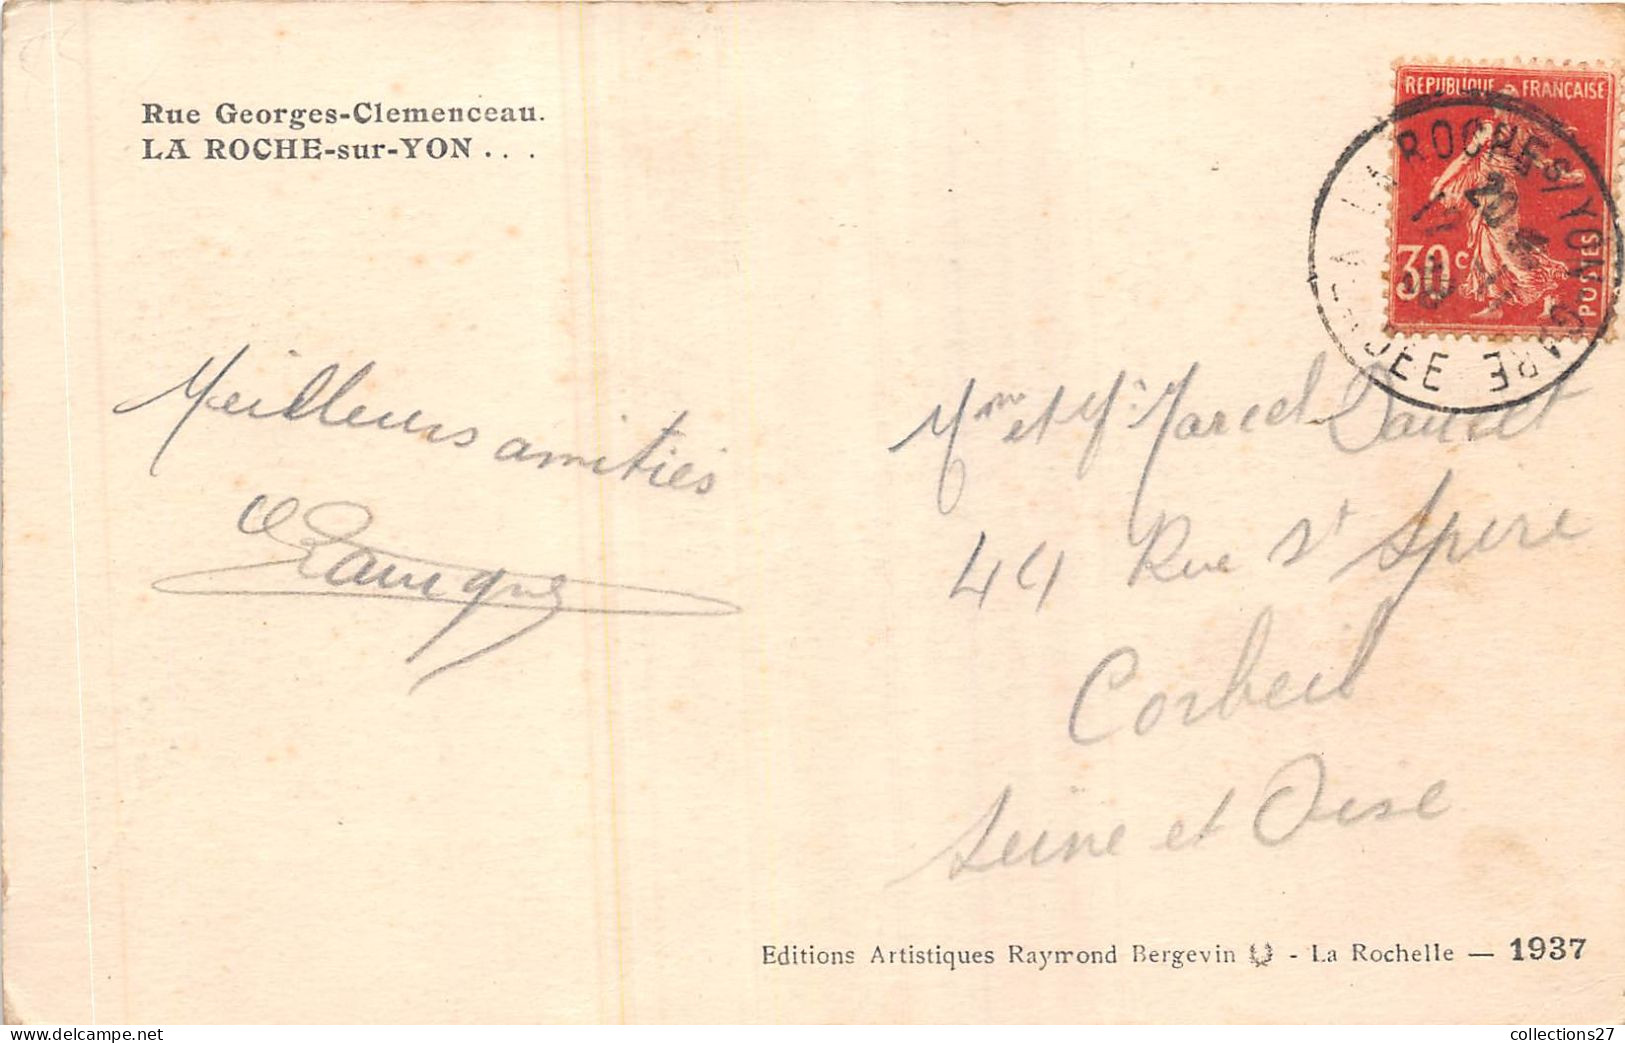 Rue Georges-Clemenceau.
LA ROCHE-sur-YON . . .
REPUBLIQUE FRANÇAISE
30c
POSTES
LA ROCHE S/ YON - GARE
20
Meilleurs amities
Mme et Mr Marcel
44 Rue St Spire
Corbeil
Seine et Oise
Editions Artistiques Raymond Bergevin - La Rochelle — 1937
collections27